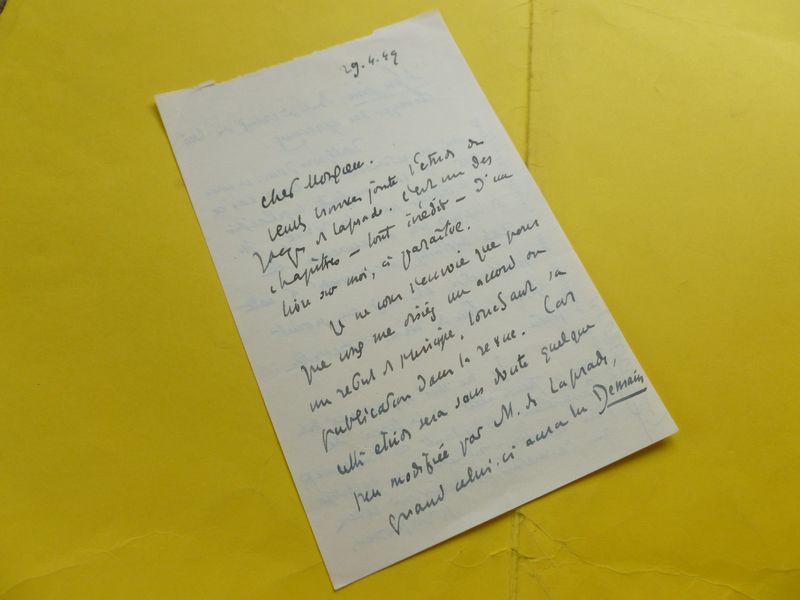 29.4.49
Cher Morgeau.
veuillez trouver jointe l'étude de
Jacques de Laprade. C'est un des
chapitres – tout inédit – d'un
livre sur moi, à paraître.
Je ne vous l'envoie que pour
que vous me disiez un accord ou
un refus de principe, touchant sa
publication dans la revue. Car
cette étude sera sans doute quelque
peu modifiée par M. de Laprade,
quand celui-ci aura lu Demain